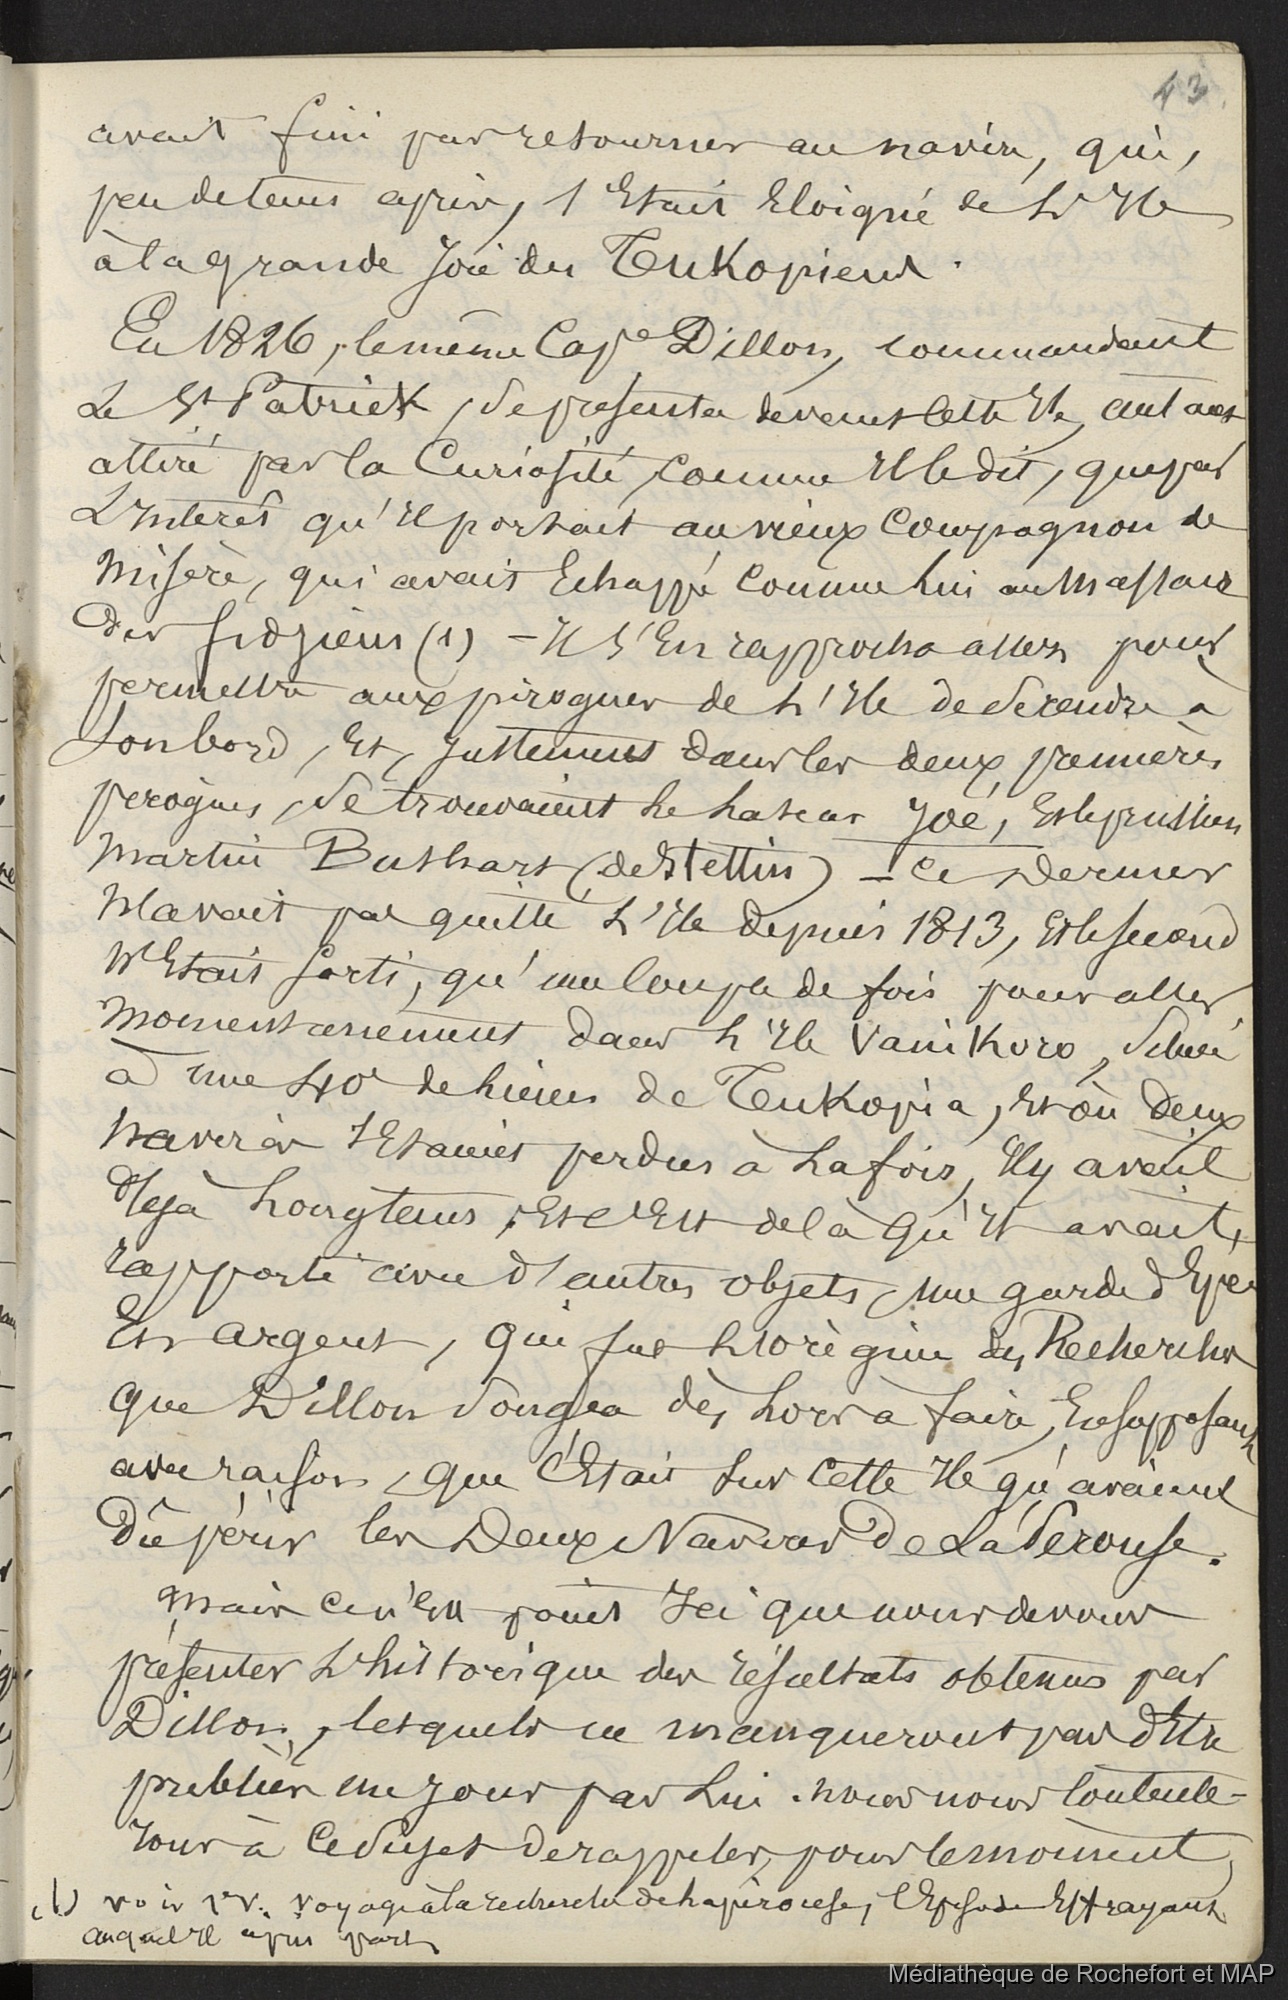 43
avait fini par retourner au navire, qui,
peu de tems après, s'Etait Eloigné de L'Ile
à la grande Joie des Tukopiens.
En 1826, le même Cap.e Dillon, commandant
Le St Patrick, se présenta devant Cette Ile, autant
attiré par la Curiosité, Comme Il le dit, que par
L'Interêt qu'Il portait au vieux Compagnon de
Misère, qui avait Echappé Comme Lui au Massacre
des fidziens (1) – Il s'En rapprocha assez pour
permettre aux pirogues de L'Ile de se rendre à
son bord, Et, Justement dans les deux premières
pirogues, se trouvaient Le Lascar Joé, Et le prussien
Martin Bushart (de Stettin) – Ce Dernier
N'avait pas quitté L'Ile depuis 1813, Et le second
N'Etait sorti, qu'une Couple de fois pour aller
Momentanément dans L'Ile Vanikoro, située
à une 40e de Lieues de Tukopia, Et où deux
Navires s'Etaient perdus à La fois, Il y avait
déjà Longtems, Et C'Est de là qu'Il avait,
rapporté avec d'autres objets, une garde d'Epée
En argent, qui fut L'origine des Recherches
que Dillon songea dès Lors à faire, En supposant
avec raison, que C'Etait sur Cette Ile qu'avaient
Dû périr les Deux Navires De La Pérouse.
Mais Ce n'Est point Ici que nous devons
présenter L'historique des résultats obtenus par
Dillon, lesquels ne manqueront pas d'Etre
publiés un Jour par Lui. nous nous Contente-
rons à Ce sujet de rappeler, pour le moment,
(1) voir 1er v. voyage à la recherche de Lapérouse, l'Episode Effrayant
auquel Il a pris part
Médiathèque de Rochefort et MAP